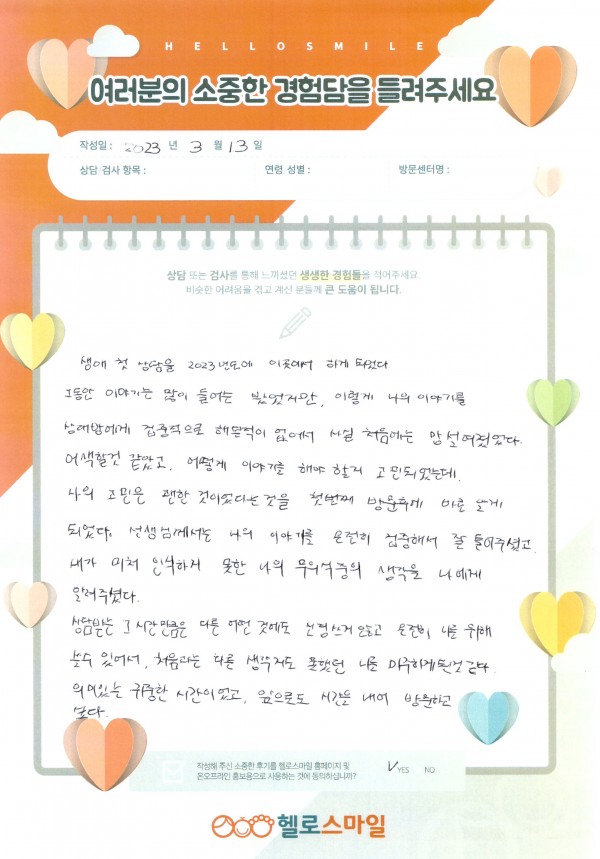 HELLOSMILE
여러분의 소중한 경험담을 들려주세요
작성일 : 2023 년 3 월 13 일
상담 검사 항목 : 연령 성별 : 방문센터명 :
상담 또는 검사를 통해 느끼셨던 생생한 경험들을 적어주세요.
비슷한 어려움을 겪고 계신 분들께 큰 도움이 됩니다.
생애 첫 상담을 2023년도에 이곳에서 하게 되었다
그동안 이야기는 많이 들어는 봤었지만, 이렇게 나의 이야기를
상대방에게 집중적으로 해본적이 없어서 사실 처음에는 망설여졌었다.
어색할것 같았고, 어떻게 이야기를 해야 할지 고민되었는데,
나의 고민은 괜한 것이었다는 것을 첫번째 방문후에 바로 알게
되었다. 선생님께서는 나의 이야기를 온전히 집중해서 잘 들어주셨고,
내가 미처 인식하지 못한 나의 무의식중의 생각을 나에게
알려주셨다.
상담받는 그 시간만큼은 다른 어떤 것에도 신경쓰지 않고 온전히 나를 위해
쓸수 있어서, 처음과는 다른 생각지도 못했던 나를 마주하게된것 같다.
의미있는 귀중한 시간이었고, 앞으로도 시간을 내어 방문하고
싶다.
작성해 주신 소중한 후기를 헬로스마일 홈페이지 및
온오프라인 홍보용으로 사용하는 것에 동의하십니까?
YES NO
헬로스마일